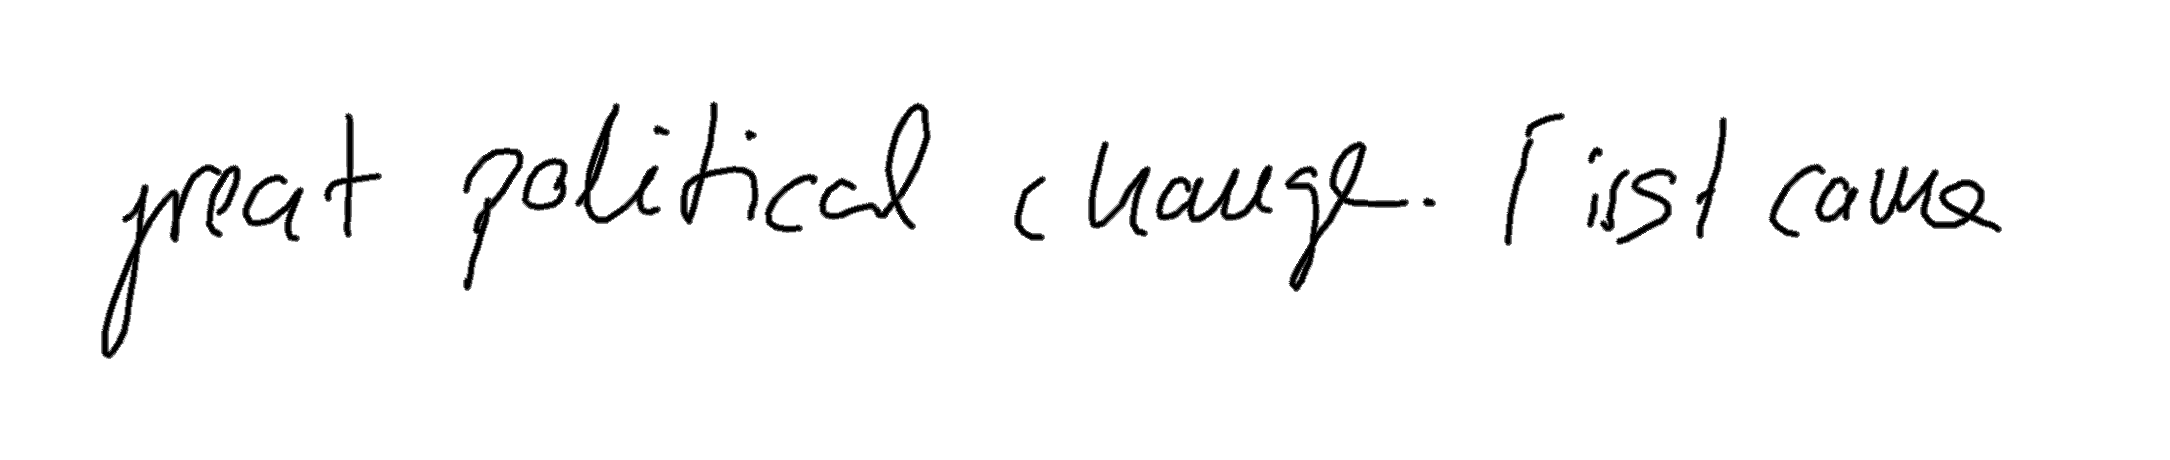 great political change. First came